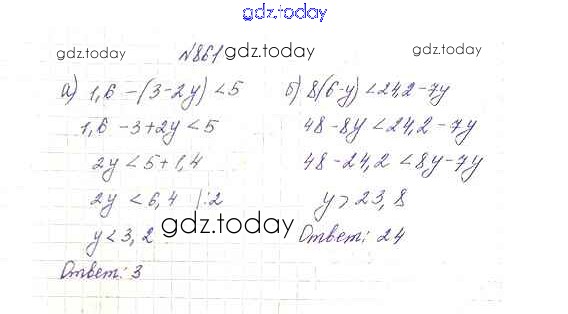 gdz.today
gdz.today №861 gdz.today gdz.today
а) 1,6 - (3 - 2y) < 5
1,6 - 3 + 2y < 5
2y < 5 + 1,4
2y < 6,4 |:2
y < 3,2
Ответ: 3
gdz.today
б) 8(6-y) < 24,2 - 7y
48 - 8y < 24,2 - 7y
48 - 24,2 < 8y - 7y
y > 23,8
Ответ: 24